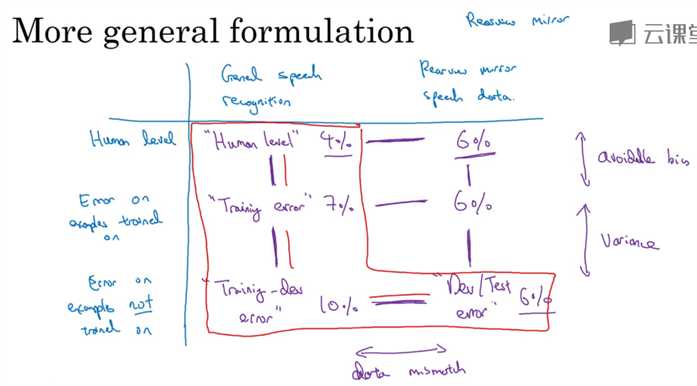 More general formulation
Rearview mirror
云课堂
General speech
recognition
Rearview mirror
speech data.
Human level
"Human level" 4%
6%
avoidable bias
Error on
examples trained
on
"Training error" 7%
6%
Variance
Error on
examples not
trained on
"Training-dev
error" 10%
"Dev/Test
error" 6%
data mismatch